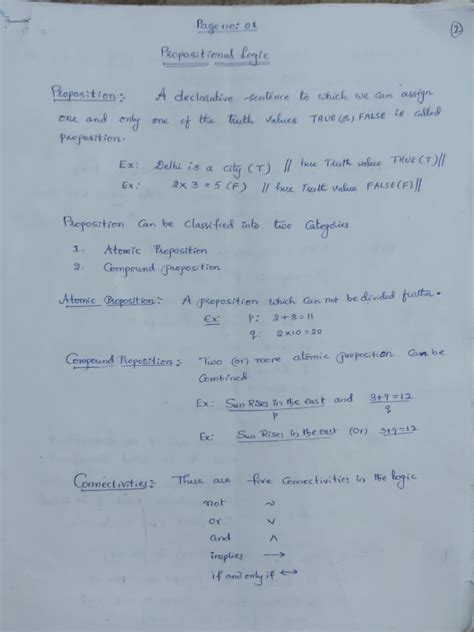 Page no: 01
2
Propositional Logic
Proposition:- A declarative sentence to which we can assign
one and only one of the truth values TRUE (or) FALSE is called
proposition.
Ex: Delhi is a city (T) // here Truth value TRUE(T)//
Ex: 2x3 = 5 (F) // here Truth value FALSE(F)//
Proposition Can be Classified into two Categories
1. Atomic Proposition
2. Compound proposition
Atomic Proposition:- A proposition which can not be divided further.
Ex: p: 2+8=11
q: 2x10=20
Compound Proposition:- Two (or) more atomic proposition Can be
Combined
Ex: Sun Rises in the east and 3+9=12
p q
Ex: Sun Rises in the east (or) 3+9=12
Connectivities:- There are five Connectivities in the logic
not ~
or ∨
and ∧
implies →
if and only if ↔